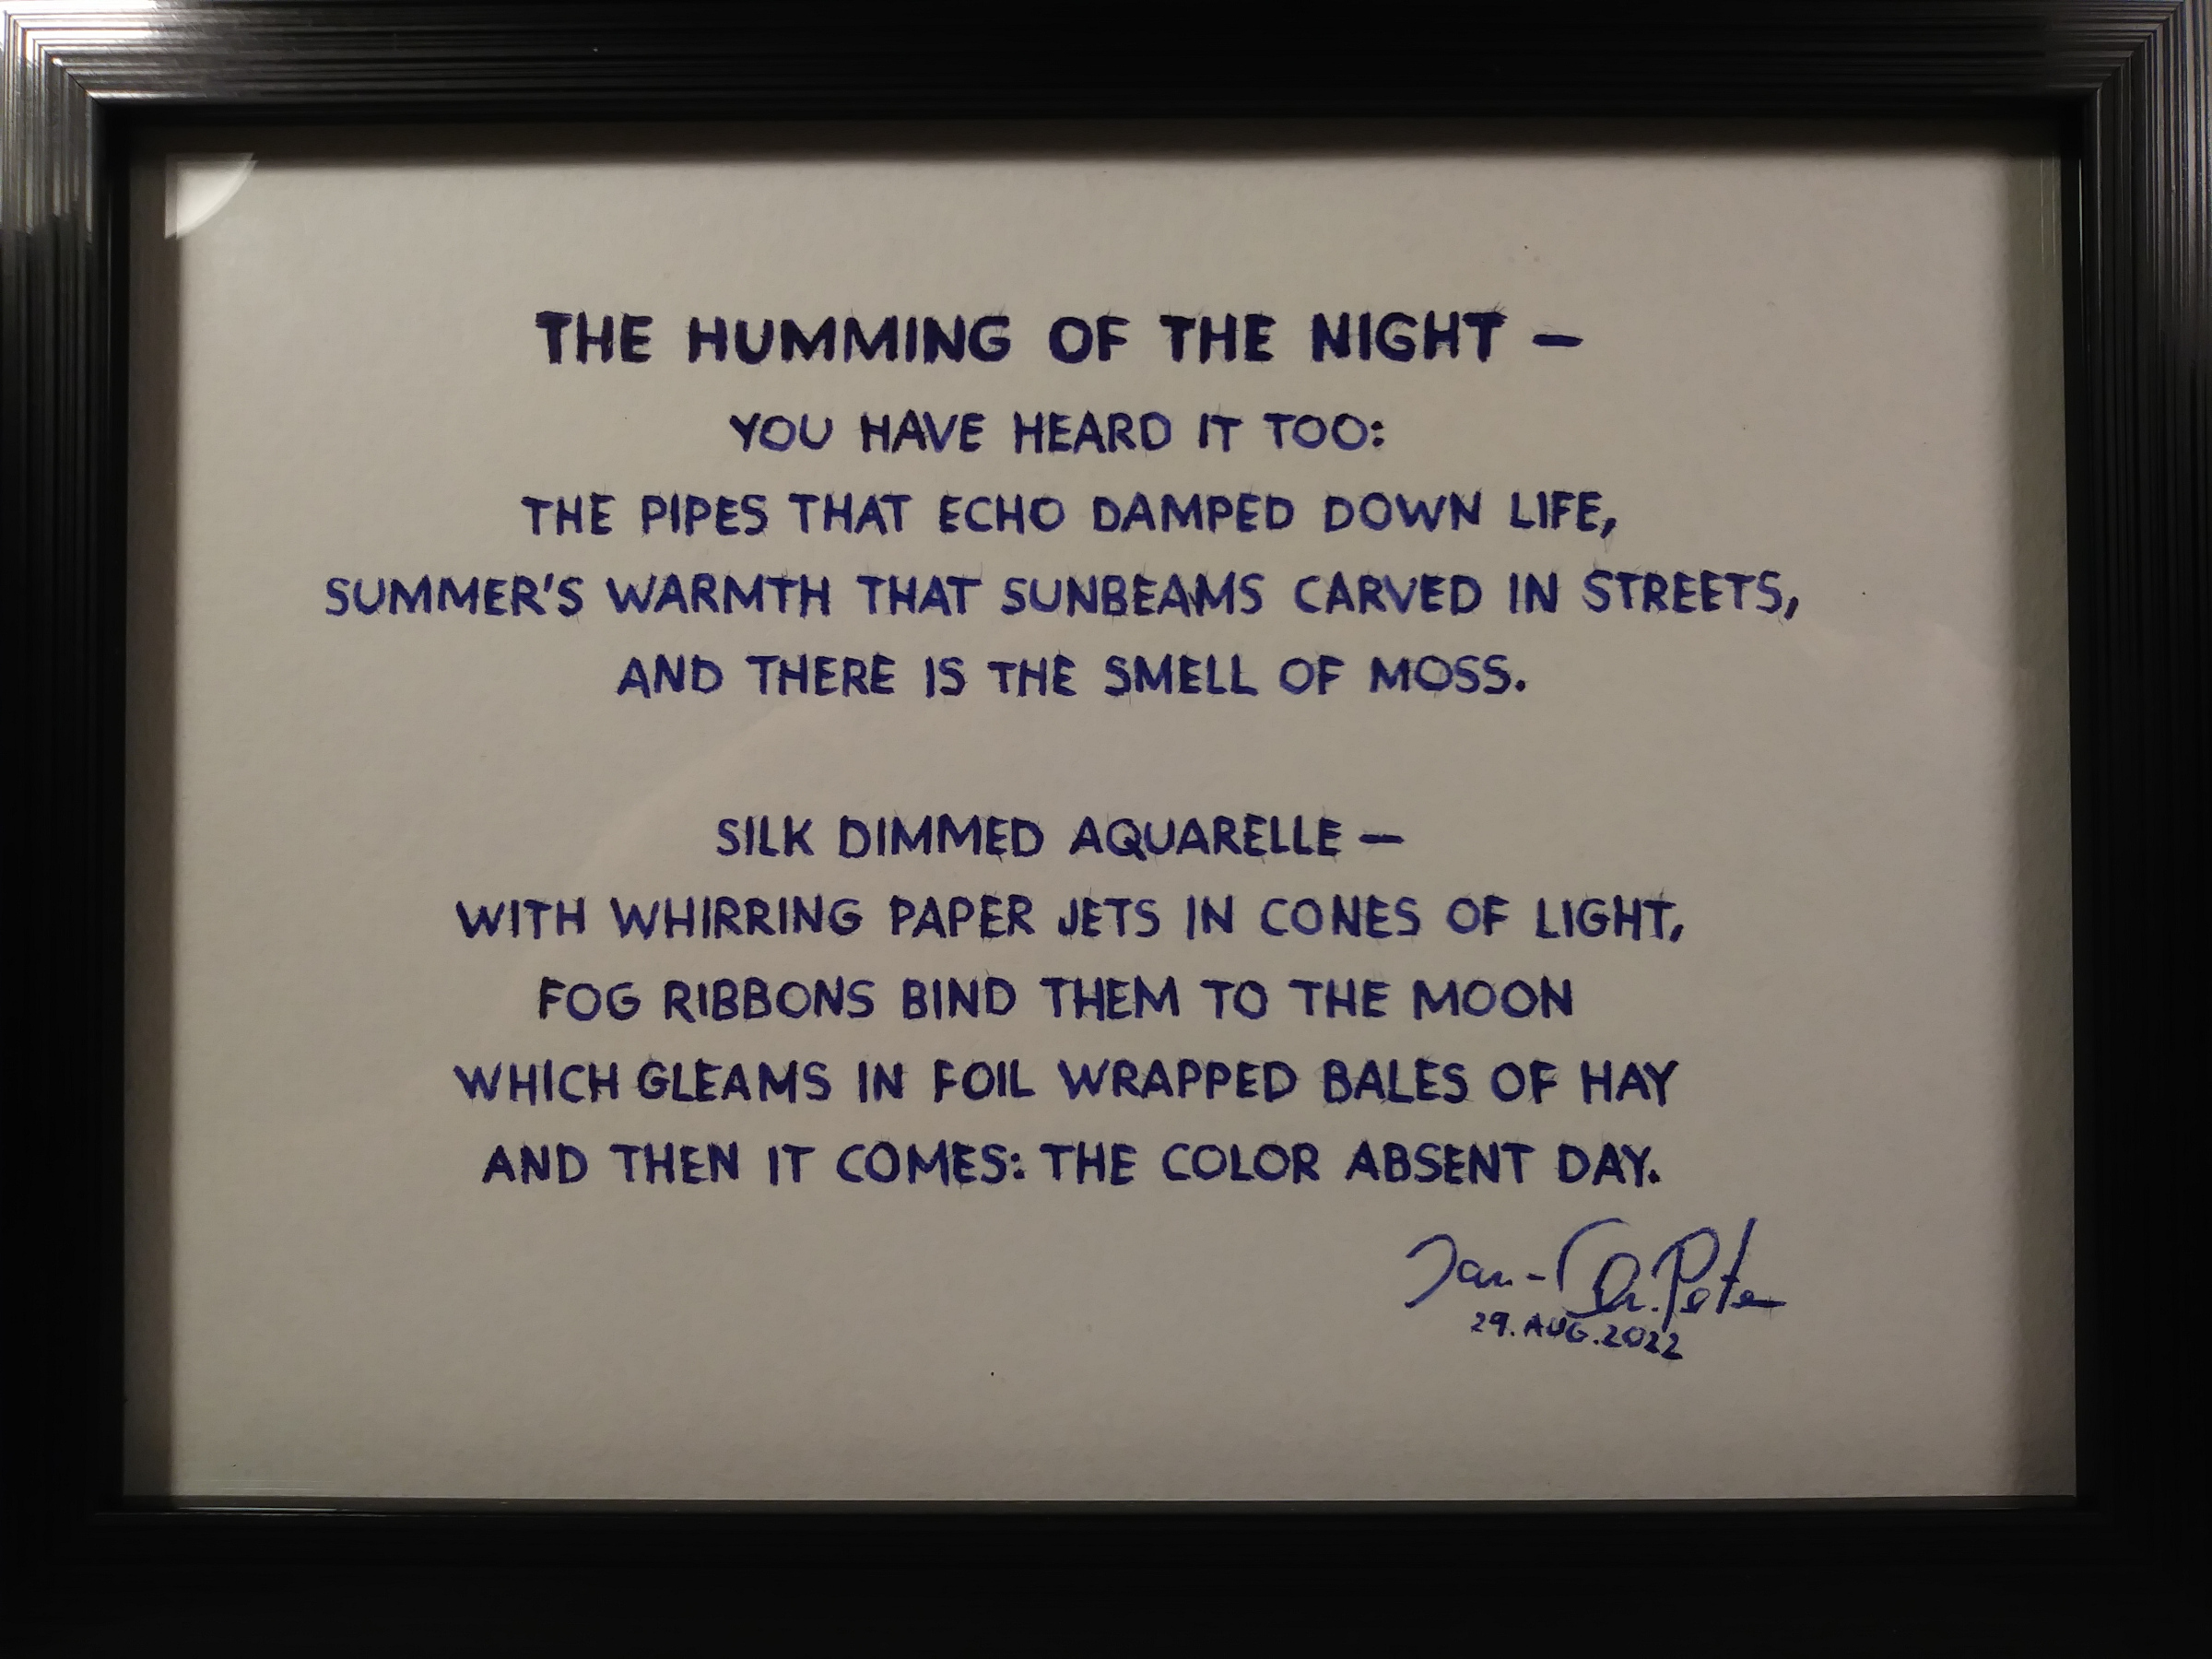 THE HUMMING OF THE NIGHT –
YOU HAVE HEARD IT TOO:
THE PIPES THAT ECHO DAMPED DOWN LIFE,
SUMMER'S WARMTH THAT SUNBEAMS CARVED IN STREETS,
AND THERE IS THE SMELL OF MOSS.
SILK DIMMED AQUARELLE –
WITH WHIRRING PAPER JETS IN CONES OF LIGHT,
FOG RIBBONS BIND THEM TO THE MOON
WHICH GLEAMS IN FOIL WRAPPED BALES OF HAY
AND THEN IT COMES: THE COLOR ABSENT DAY.
Jan-Ch. Peter
29. AUG. 2022